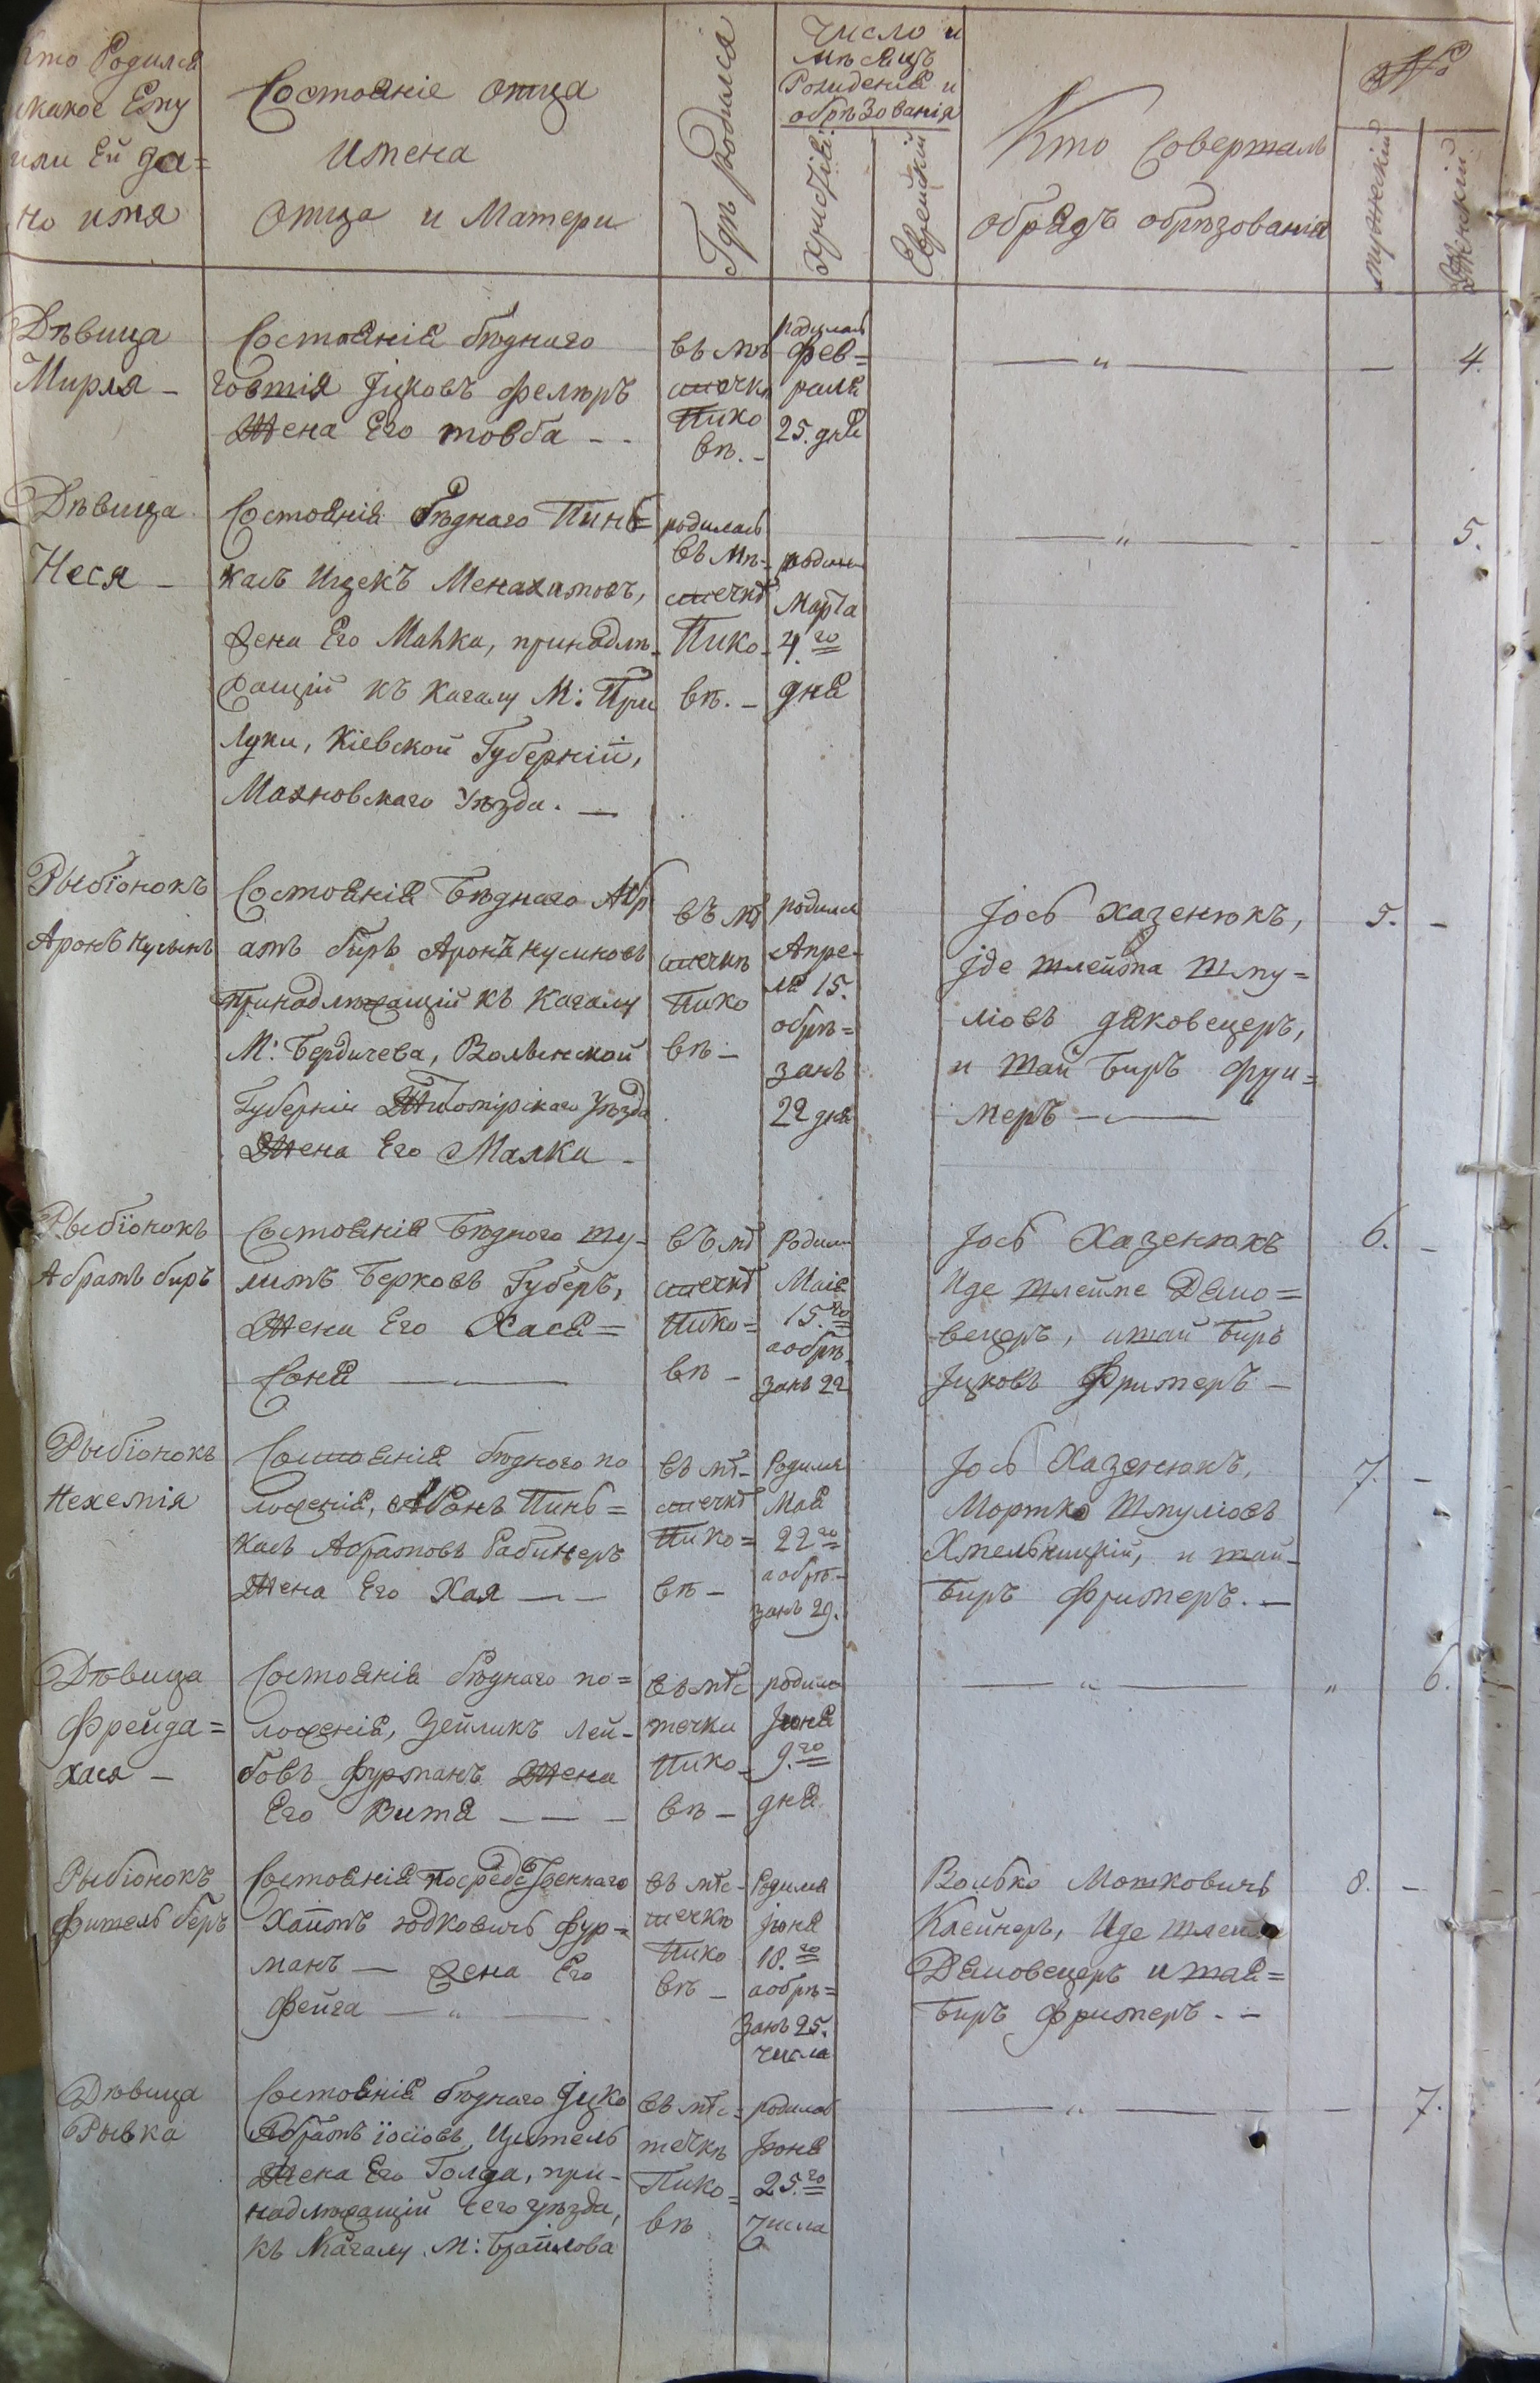 Кто Родился
и какое Ему
или Ей да=
но имя
Состояніе отца
Имена
отца и Матери
Гдѣ родился
Число и
мѣсяцъ
Рожденія и
обрѣзованія
Еврейскій
Кто Совершалъ
обрядъ обрѣзованія
№
мужескій
Женскій
Дѣвица
Мирля –
Состоянія бѣднаго
Іцковъ
Жена Его товба – -
въ мѣ
стечкѣ
Пико
вѣ. –
родилась
Фев=
раля
25. дня
— „ —
–
4.
Дѣвица
Неся –
Состоянія бѣднаго Пинь=
касъ Ицекъ Менахимовъ,
жена Его Манка, принадле-
жащій къ Кагалу М: При
луки, Кіевской Губерній,
Махновскаго Уѣзда. —
родилась
въ Мѣ-
стечкѣ
Пико-
вѣ. –
родилась
Марта
4.го
дня
— „ — -
-
5.
Рыбіонокъ
Аронъ Нусынъ
Состоянія Бѣднаго Абр
амъ биръ Аронъ нусиновъ
принадлежащій къ Кагалу
М: Бердичева, Волынской
Губерніи Житомірскаго Уѣзда
Жена Его Малка –
въ мѣ
стечкѣ
Пико
вѣ –
родился
Апре-
ля 15.
обрѣ=
занъ
22 дня
Іось хазенюкъ,
Іде шлейма Шму=
ліовъ дяковецеръ,
и Шай Биръ Фри=
меръ — —
5.
–
Рыбіонокъ
Абрамъ биръ
Состоянія Бѣдного Шу-
лимъ Берковъ Губеръ,
Жена Его Хася=
Соня — —
въ мѣ
стечкѣ
Пико=
вѣ –
Родился
Маія
15.го
а обрѣ-
занъ 22
Іось Хазенюкъ
Иде Шлейме Дяко=
вецеръ, и шай Биръ
Іцковъ Фримеръ –
6.
–
Рыбіонокъ
Нехемія
Состоянія бѣдного по
ложенія, Пинь=
касъ Абрамовъ Рабинеръ
Жена Его Хая – –
въ мѣ-
стечкѣ
Пико=
вѣ –
Родился
Мая
22го
а обрѣ-
занъ 29.
Іось Хазенюкъ,
Мортко Шмуліовъ
Хмельницкій, и шай-
Биръ Фримеръ. –
7.
–
Дѣвица
Фрейда=
Хася –
Состоянія бѣднаго по=
ложенія, Зейликъ Лей-
бовъ Фурманъ Жена
Его Витя – – –
въ мѣс
течки
Пико-
вѣ –
родилась
Іюня
9.го
дня
— „ —
„
6.
Рыбіонокъ
Фишель беръ
Состоянія Посредственнаго
Хаимъ юдковичъ Фур=
манъ – жена Его
Фейга — „ —
въ мѣс-
течкѣ
Пико
вѣ –
Родился
іюня
18.го
а обрѣ=
занъ 25.
числа
Волько Мошковичъ
Клейнеръ, Иде шлейма
Дяковецеръ и шая=
Биръ Фримеръ - –
8.
–
Дѣвица
Рывка
Состоянія бѣднаго Іцко
Абрамъ іосіовъ,
Жена Его Голда, при-
надлежащій сего уѣзда,
къ Кагалу М: Браилова
въ мѣс=
течкѣ
Пико=
вѣ
родилась
Іюня
25.го
Числа
— „ — –
–
7.